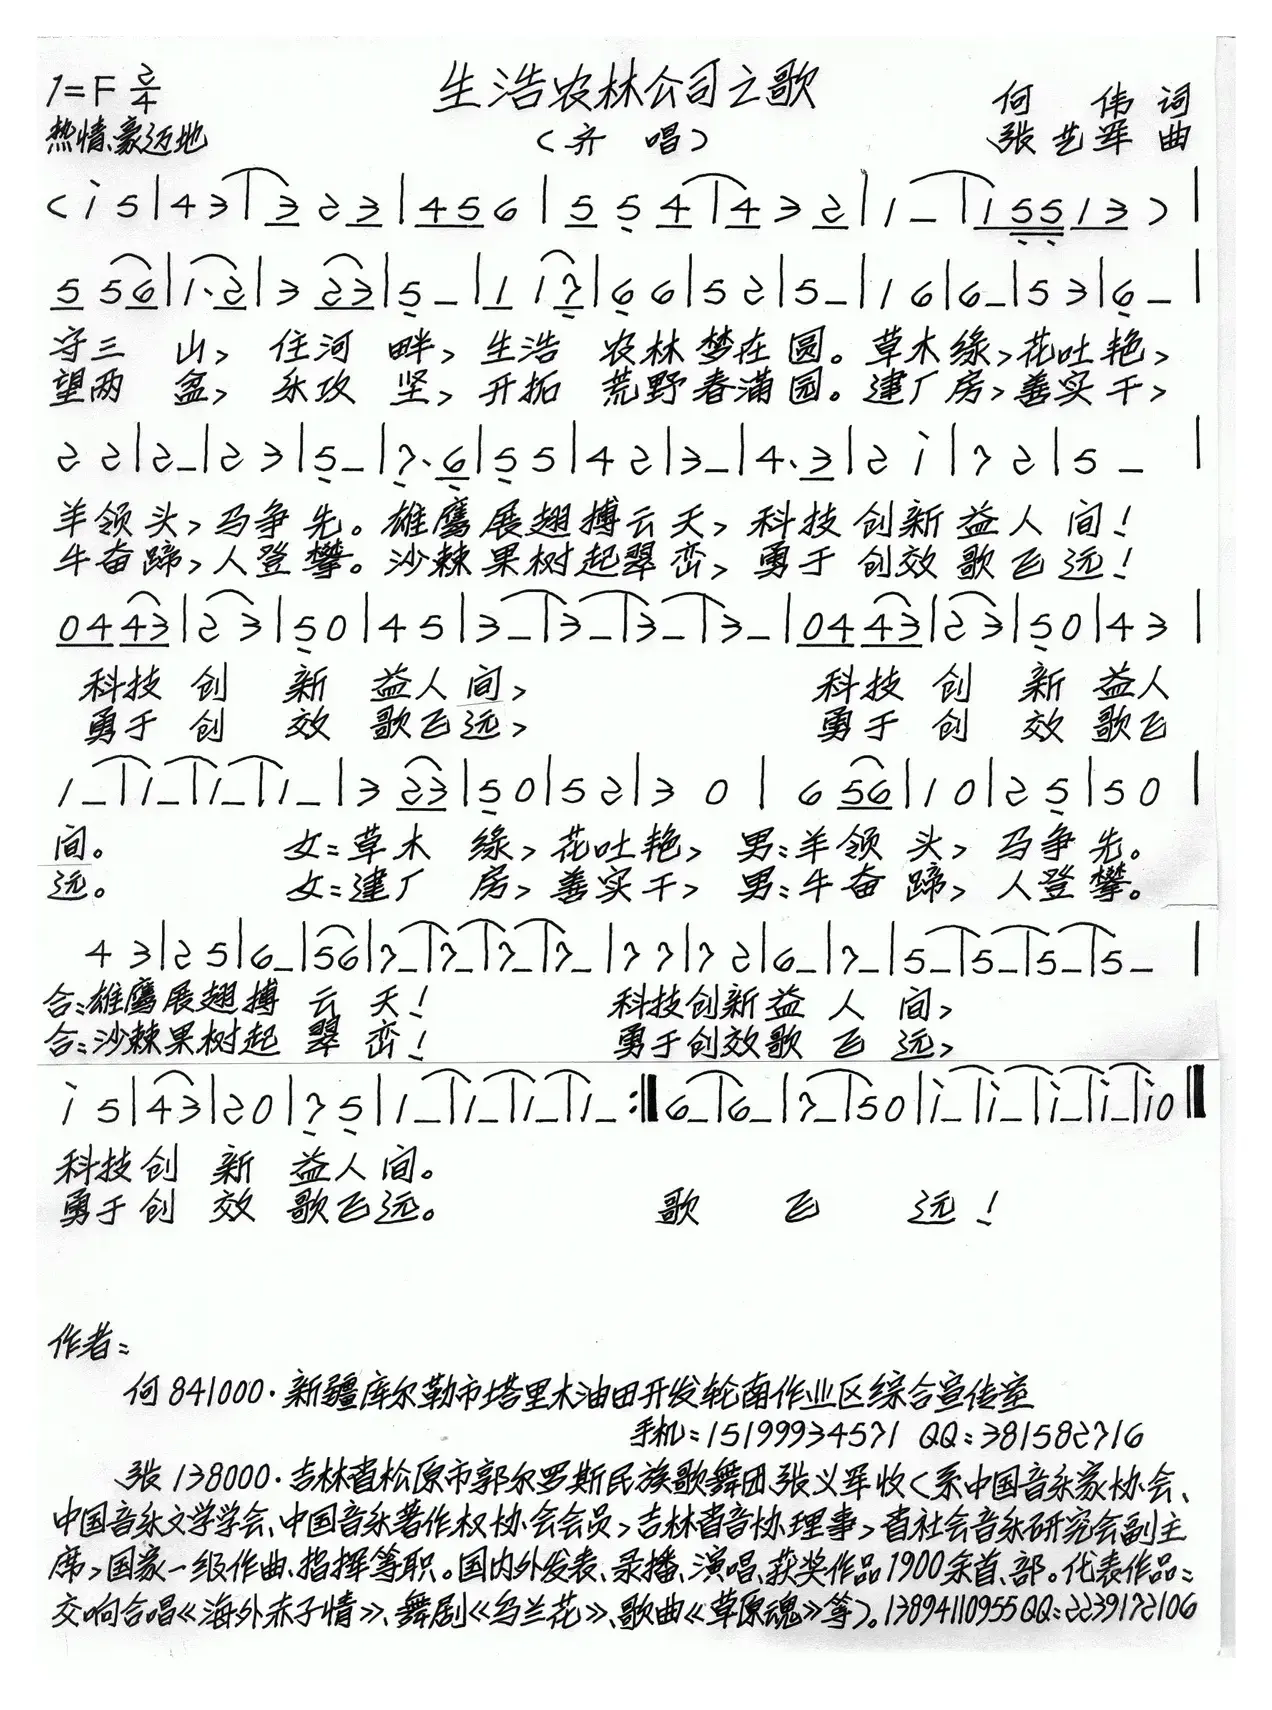 生浩农林公司之歌
1=F 2/4
何 伟 词
热情、豪迈地
(齐 唱)
张艺军 曲
(i 5|4 3|3 2 3|4 5 6|5 5 4|4 3 2|1 _|1 5 5 1 3)|
5 5 6|1· 2|3 2 3|5 _|1 1 7|6 6|5 2|5 _|1 6|6 _|5 3|6 _|
守三 山, 住河 畔, 生浩 农林梦在圆。草木缘,花吐艳,
望两 盆, 永攻 坚, 开拓 荒野春满园。建厂房,善实干,
2 2|2 _|2 3|5 _|7· 6|5 5|4 2|3 _|4· 3|2 i|7 2|5 _|
羊领头,马争先。雄鹰展翅搏云天,科技创新益人间!
牛奋蹄,人登攀。沙棘果树起翠峦,勇于创效歌飞远!
0 4 4 3|2 3|5 0|4 5|3 _|3 _|3 _|3 _|0 4 4 3|2 3|5 0|4 3|
科技 创 新 益人间, 科技 创 新 益人
勇于 创 效 歌飞远, 勇于 创 效 歌飞
1 _|1 _|1 _|1 _|3 2 3|5 0|5 2|3 0|6 5 6|1 0|2 5|5 0|
间。 女:草木 缘,花吐艳,男:羊领 头,马争先。
远。 女:建厂 房,善实干,男:牛奋 蹄,人登攀。
4 3|2 5|6 _|5 6|7 _|7 _|7 _|7 _|7 7|7 2|6 _|7 _|5 _|5 _|5 _|5 _|
合:雄鹰展翅搏 云 天! 科技创新益 人 间,
合:沙棘果树起 翠 峦! 勇于创效歌 飞 远,
i 5|4 3|2 0|7 5|1 _|1 _|1 _|1 _:‖6 _|6 _|7 _|5 0|i _|i _|i _|i _|i 0‖
科技创 新 益人间。
勇于创 效 歌飞远。 歌 飞 远!
作者:
何841000·新疆库尔勒市塔里木油田开发轮南作业区综合宣传室
手机:15199934571 QQ:381582716
张138000·吉林省松原市郭尔罗斯民族歌舞团张义军收(系中国音乐家协会、
中国音乐文学学会、中国音乐著作权协会会员,吉林省音协理事,省社会音乐研究会副主
席,国家一级作曲、指挥等职。国内外发表、录播、演唱、获奖作品1900余首、部。代表作品:
交响合唱《海外赤子情》、舞剧《乌兰花》、歌曲《草原魂》等)。13894110955QQ:2239172106